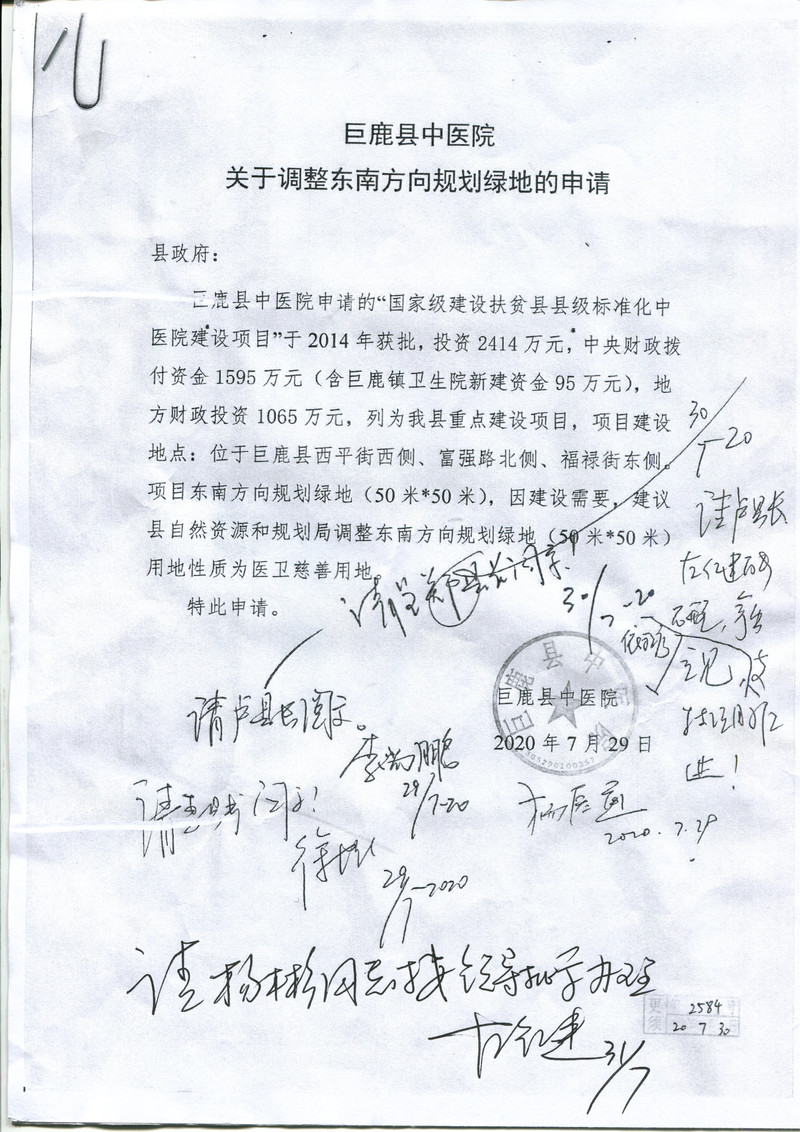 巨鹿县中医院
关于调整东南方向规划绿地的申请
县政府：
巨鹿县中医院申请的“国家级建设扶贫县县级标准化中
医院建设项目”于 2014 年获批，投资 2414 万元，中央财政拨
付资金 1595 万元（含巨鹿镇卫生院新建资金 95 万元），地
方财政投资 1065 万元，列为我县重点建设项目，项目建设
地点：位于巨鹿县西平街西侧、富强路北侧、福禄街东侧。
项目东南方向规划绿地（50 米*50 米），因建设需要，建议
县自然资源和规划局调整东南方向规划绿地（50 米*50 米）
用地性质为医卫慈善用地。
特此申请。
30/7-20
请卢县长
30/7-20
请卢县长阅示。
巨鹿县中医院
巨鹿县中医院
2020 年 7 月 29 日
29/7-20
2020.7.29
29/7-2020
请杨彬同志按领导批示办理
31/7
2584
20 7 30